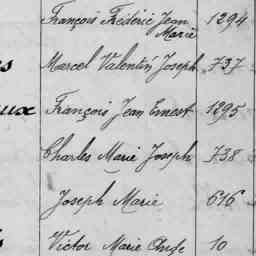 François Frédéric Jean 1294
Marie
Marcel Valentin Joseph 737
François Jean Ernest 1295
Charles Marie Joseph 738
Joseph Marie 616
Victor Marie Ange 10